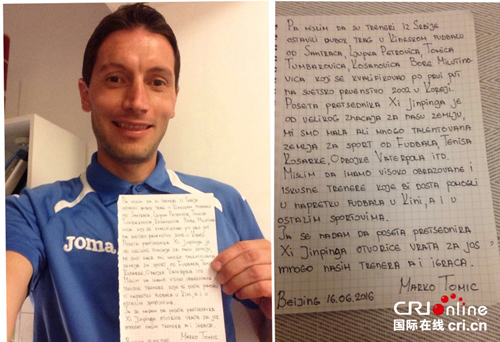 Joma
PA MISLIM DA SU TRENERI IZ SRBIJE
OSTAVILI DUBOK TRAG U KINESKOM FUDBALU
OD SANTRACA, LJUPKA PETROVICA, TONICA
TUMBAKOVICA, KOSANOVICA BORE MILUTINO-
VICA KOJI SE KVALIFIKOVAO PO PRVI PUT
NA SVETSKO PRVENSTVO 2002 U KOREJI.
POSETA PRETSEDNIKA XI JINPINGA JE
OD VELIKOG ZNACAJA ZA NASU ZEMLJU,
MI SMO MALA ALI MNOGO TALENTOVANA
ZEMJA ZA SPORT OD FUDBALA, TENISA
KOSARKE, ODBOJKE VATERPOLA ITD.
MISLIM DA IMAMO VISOKO OBRAZOVANE I
ISKUSNE TRENERE KOJI BI DOSTA POMOGLI
U NAPRETKU FUDBALA U KINI, A I U
OSTALIM SPORTOVIMA.
JA SE NADAM DA POSETA PRETSEDNIKA
XI JINPINGA OTVORICE VRATA ZA JOS
MNOGO NASIH TRENERA A I IGRACA.
MARKO TOMIC
BEIJING 16.06.2016
CRI online
国际在线 cri.cn